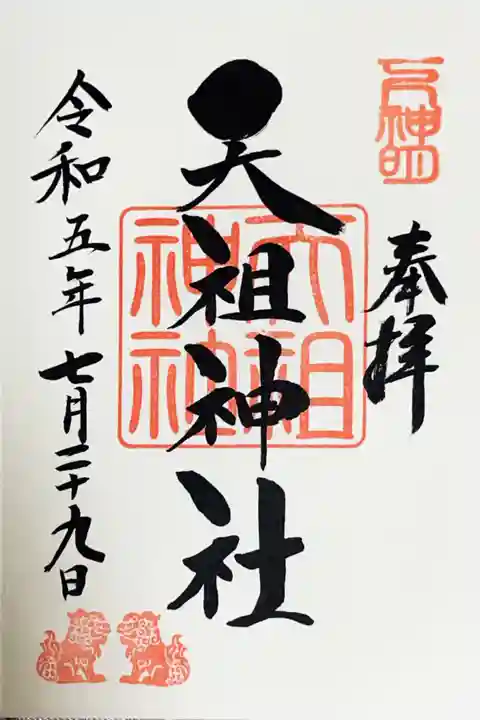 元神明
奉拝
天祖神社
天祖神社
令和五年七月二十九日